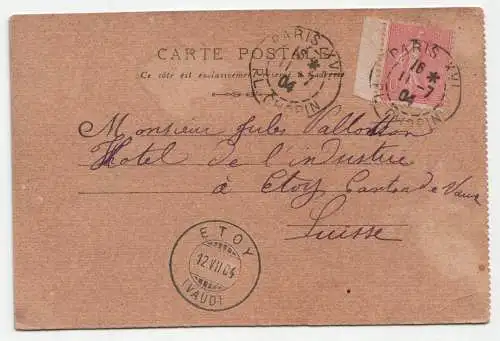 CARTE POSTALE
Ce côté est exclusivement réservé à l'adresse
PARIS XVI
16 *
11 - 7
04
PL. CHOPIN
PARIS XVI
16 *
11 - 7
04
PL. CHOPIN
Monsieur Jules Vallotton
Hotel de l'industrie
à Etoy Canton de Vaud
Suisse
ETOY
12.VII.04
(VAUD)